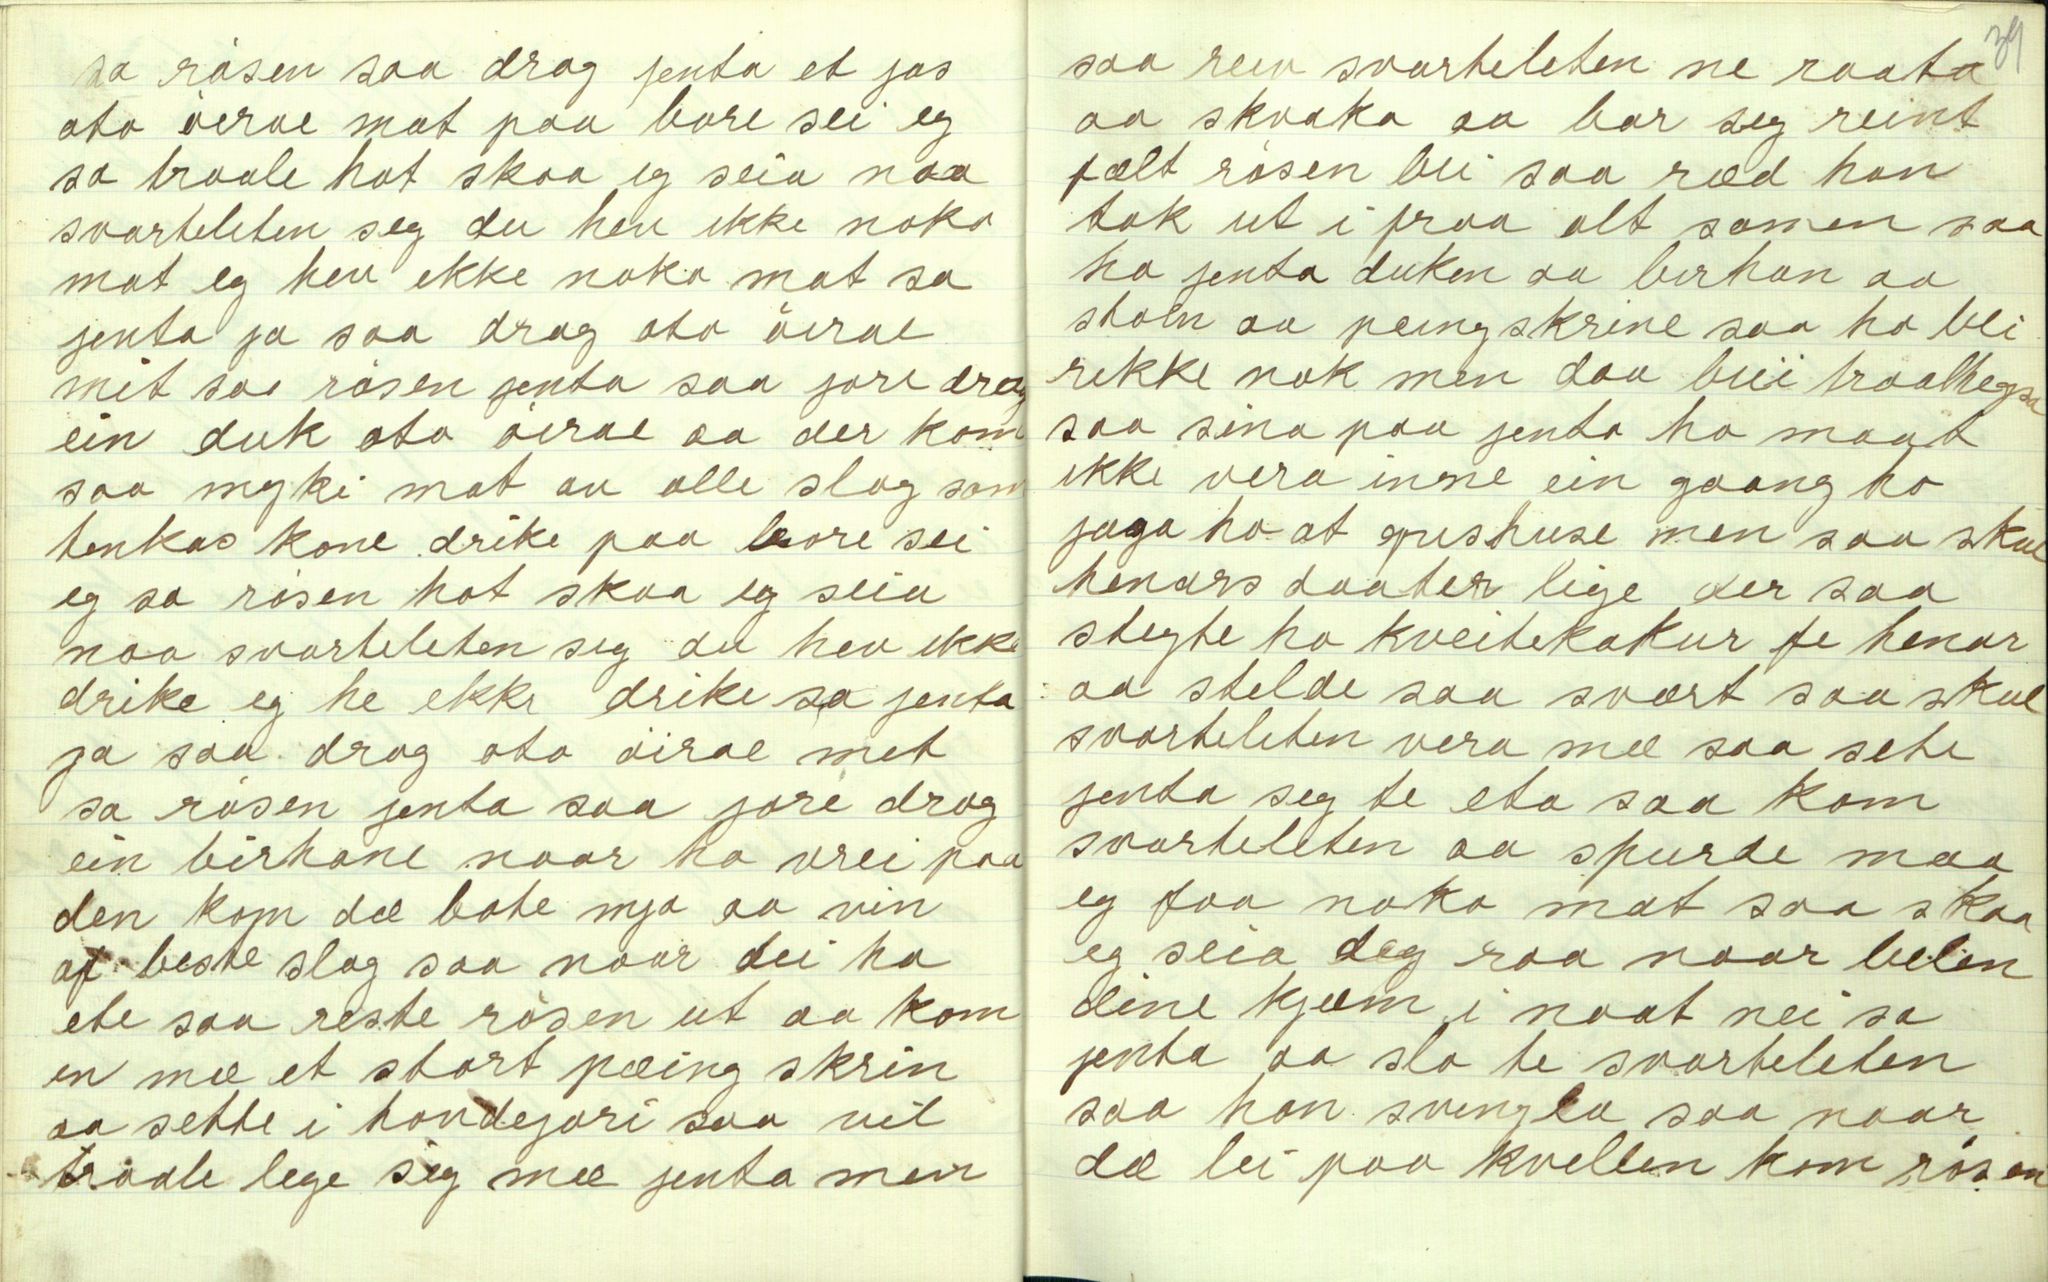 sa råsen saa drag jenta et jas
oto öirae mat paa bore sei eg
sa traale hot skaa eg seia naa
svarteleten seg du hev ikke noko
mat eg hev ekke noko mat sa
jenta ja saa drag oto öirae
mit saa råsen jenta saa jore drag
ein duk oto öirae aa der kom
saa myki mat av alle slag som
tenkas kone drike paa bore sei
eg sa råsen hot skaa eg seia
naa svarteleten seg du hev ikke
drike eg he ekke drike sa jenta
ja saa drag oto öirae met
sa råsen jenta saa jore drag
ein birhane naar ho vrei paa
den kom dæ bote mjo aa vin
af beste slag saa naar dei ha
ete saa reste råsen ut aa kom
en mæ et stort pæing skrin
aa sette i hondejori saa vil
traale lege sig mæ jenta men
39
saa reiv svarteleten ne raata
aa skvaka aa bar seg reint
fælt råsen blei saa ræd han
tok ut i fraa alt samen saa
ha jenta duken aa birhan aa
stoln aa peingskrine saa ho blei
rikke nok men daa blei traalhegsa
saa sina paa jenta ho maat
ikke vera inne ein gaang ho
jaga ho at grishuse men saa skul
henars daater lige der saa
stegte ho kveitekakur fe henar
aa stelde saa svært saa skul
svarteleten vera mæ saa sete
jenta seg te eta saa kom
svarteleten aa spurde maa
eg faa noko mat saa skaa
eg seia deg raa naar belen
dine kjæm i naat nei sa
jenta aa slo te svarteleten
saa han svengla saa naar
dæ lei paa kvellen kom råsen